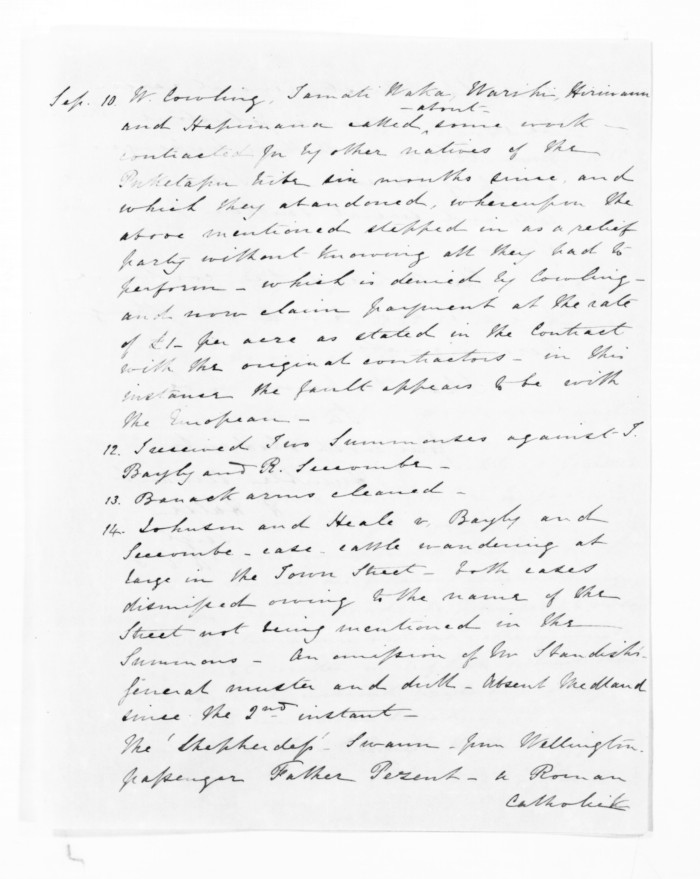 Sep. 10. W. Cowling, Tamati Waka, Waribi, Hiriwanu
about
and Hapimana called some work –
contracted for by other natives of the
Puketapu tribe six months since, and
which they abandoned, whereupon the
above mentioned stepped in as a relief
party without knowing all they had to
perform – which is denied by Cowling –
and now claim payment at the rate
of £1– per acre as stated in the Contract
with the original contractors – in this
instance the fault appears to be with
the European –
12. I received Two Summonses against T.
Bayly and R. Seccombe –
13. Barrack arms cleaned –
14. Johnson and Heale v. Bayly and
Seccombe – case – cattle wandering at
large in the Town Street – both cases
dismissed owing to the name of the
Street not being mentioned in the
Summons – An omission of Mr Standish's –
General muster and drill – Absent Medland
since the 2nd instant –
The 'Shepherdess' – Swann – from Wellington.
passenger Father Pezent – a Roman
Catholic